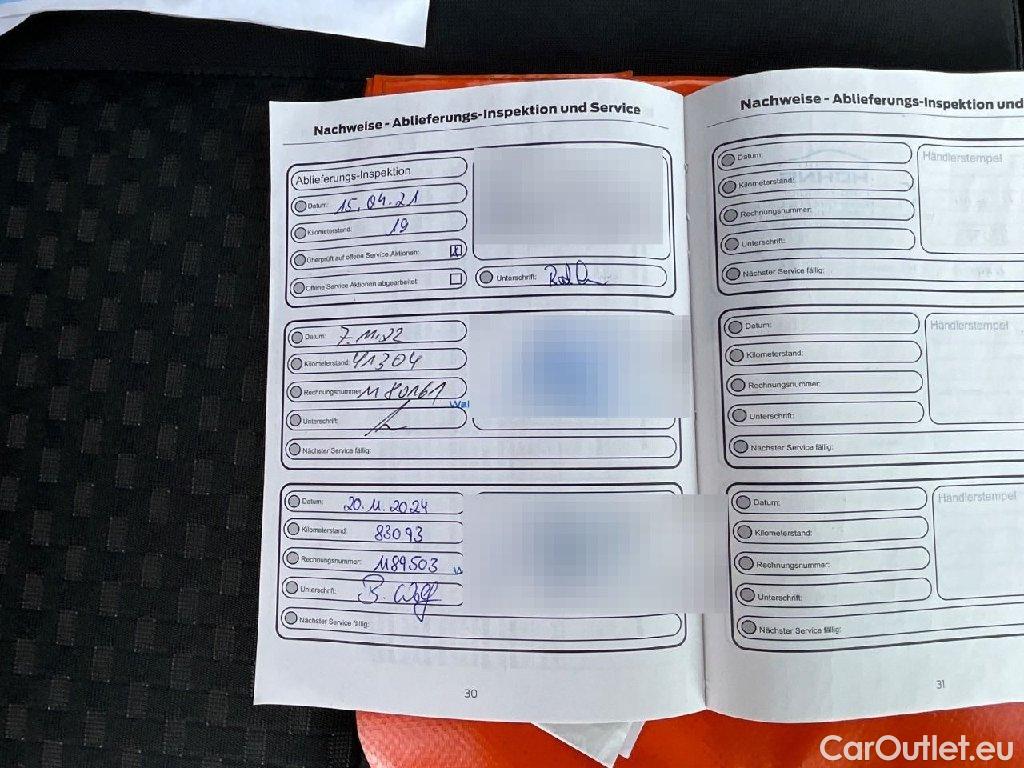 Nachweise - Ablieferungs-Inspektion und Service
Ablieferungs-Inspektion
Datum: 15.04.21
Kilometerstand: 19
Überprüft auf offene Service Aktionen: X
Offene Service Aktionen abgearbeitet:
Unterschrift:
Datum: 7.11.22
Kilometerstand: 41304
Rechnungsnummer: 1180161
Unterschrift:
Nächster Service fällig:
Datum: 20.11.2024
Kilometerstand: 83093
Rechnungsnummer: 1189503
Unterschrift:
Nächster Service fällig:
30
Nachweise - Ablieferungs-Inspektion und
Datum:
Händlerstempel
Kilometerstand:
Rechnungsnummer:
Unterschrift:
Nächster Service fällig:
Datum:
Händlerstempel
Kilometerstand:
Rechnungsnummer:
Unterschrift:
Nächster Service fällig:
Datum:
Händlerstempel
Kilometerstand:
Rechnungsnummer:
Unterschrift:
Nächster Service fällig:
31
CarOutlet.eu